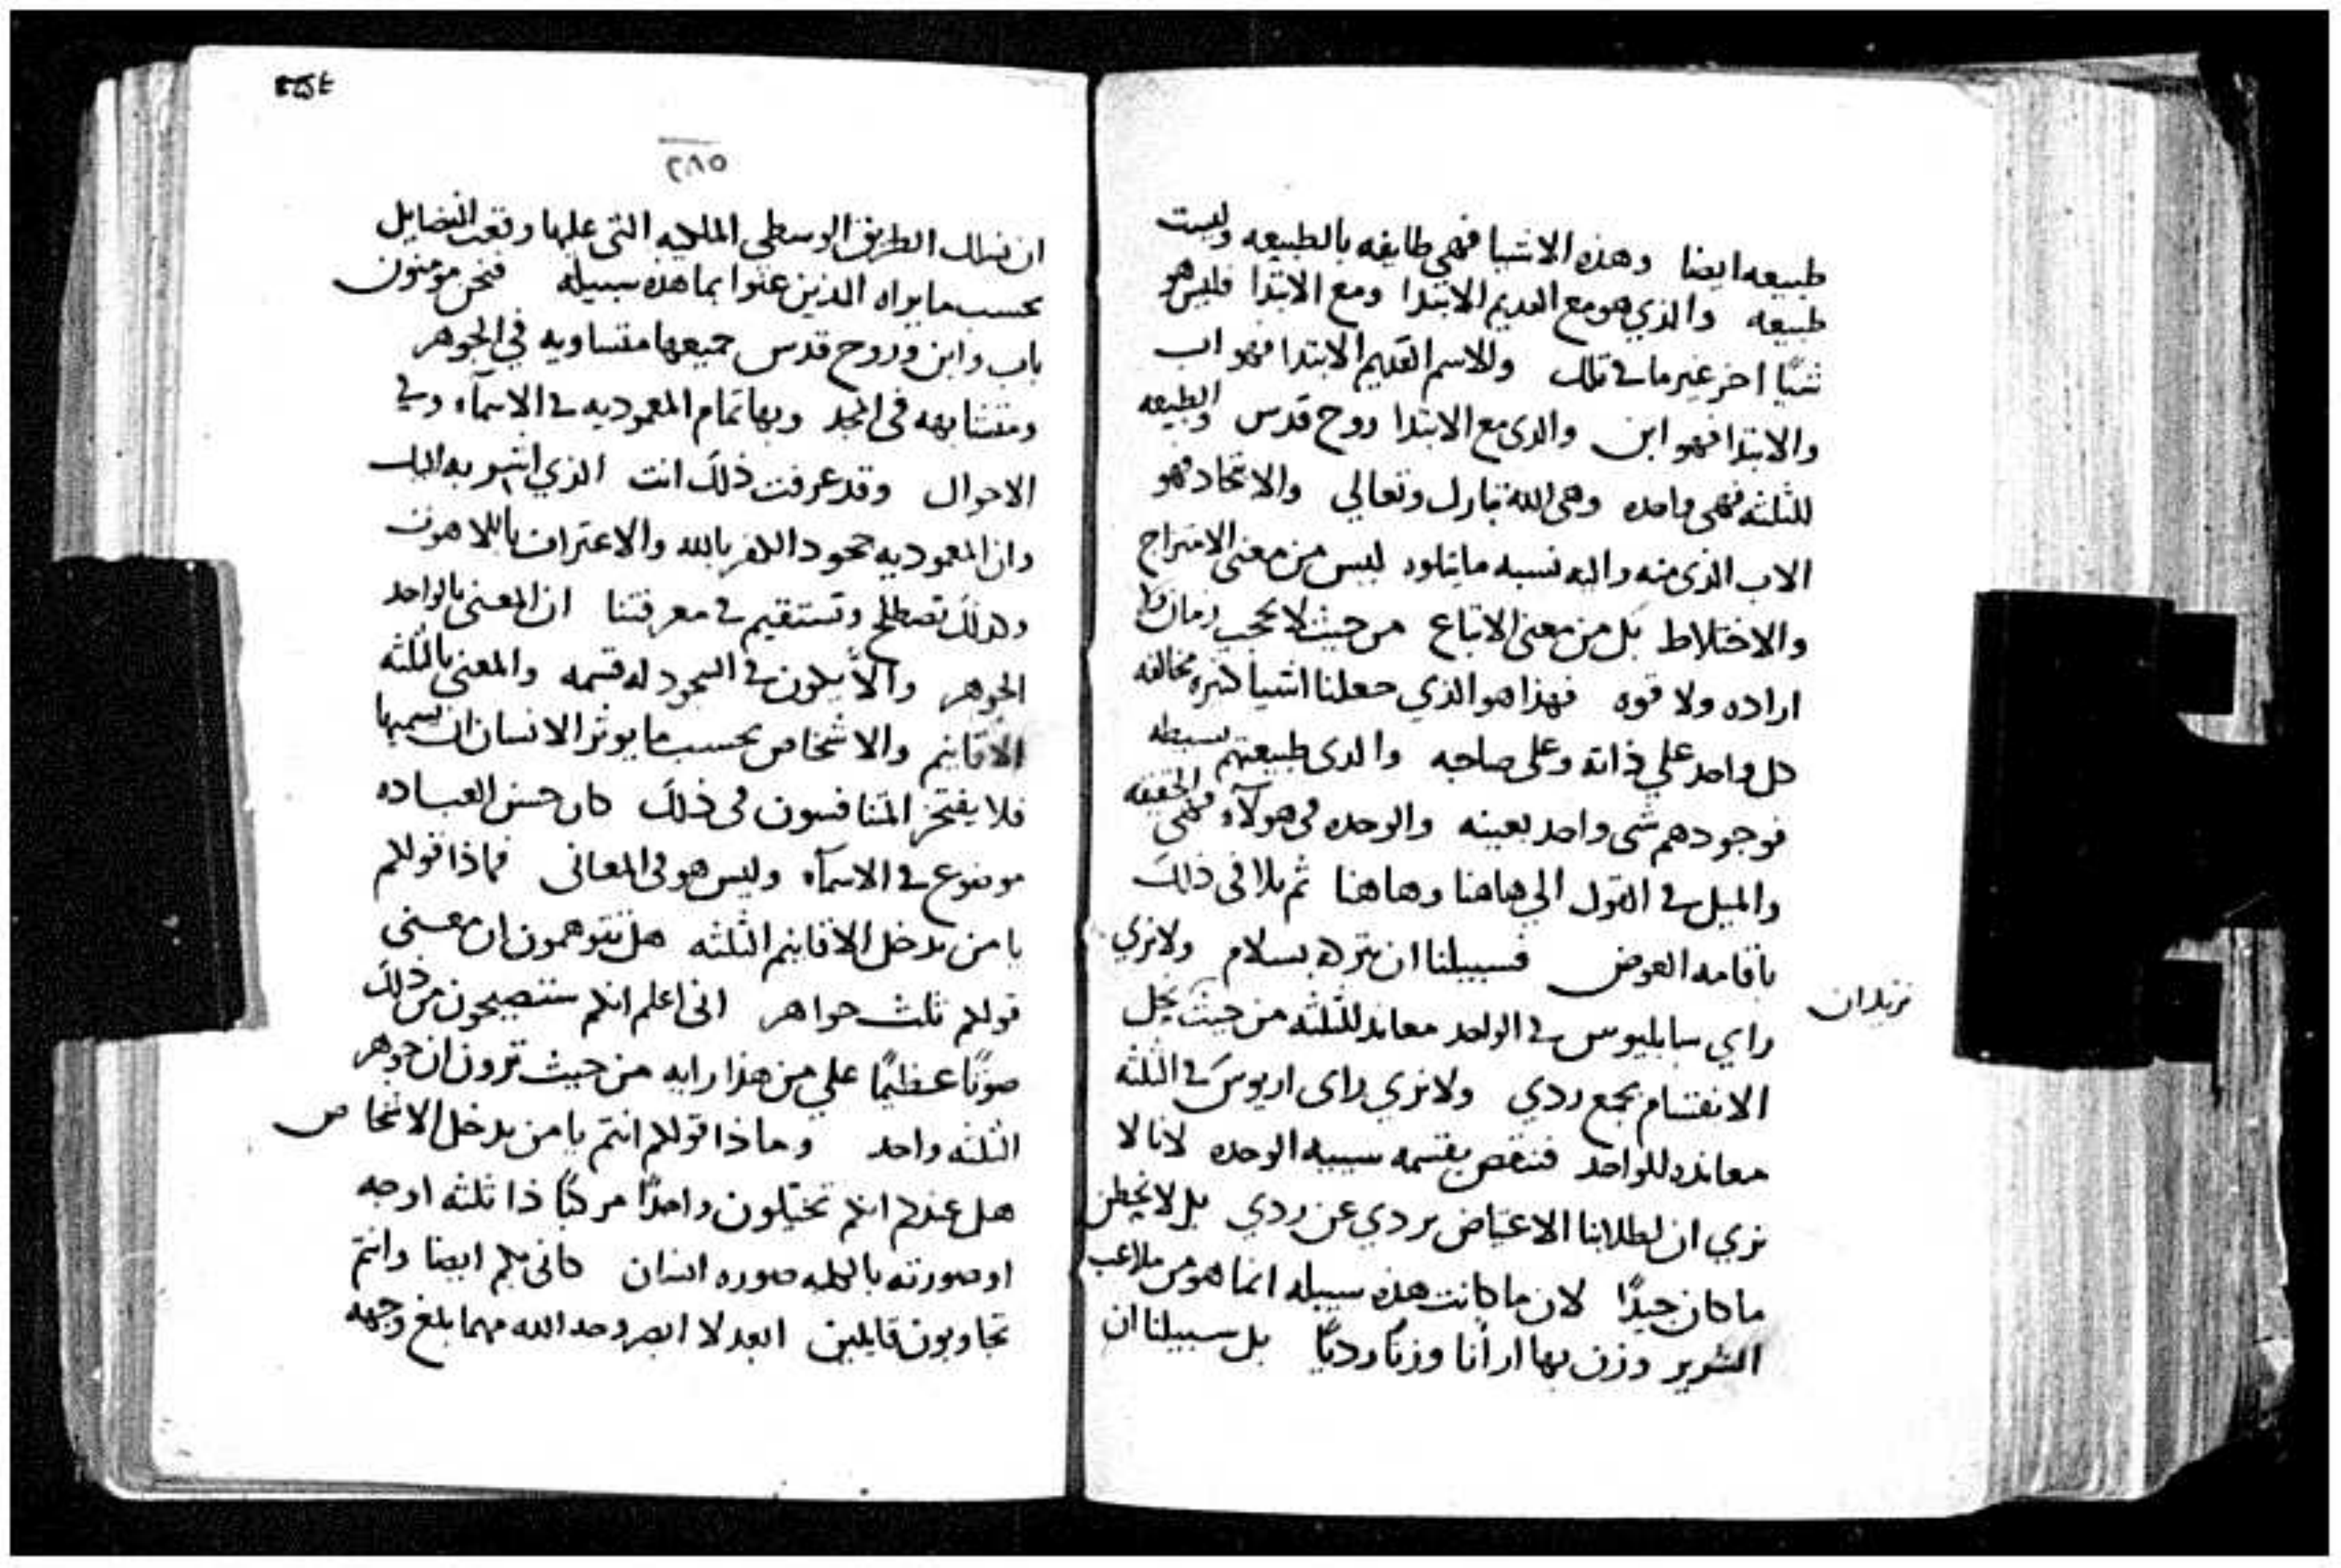 طبيعه ايضا وهذه الاشيا فهي طايفه بالطبيعه وليست
طبيعه والذي هو مع العديم الابتدا ومع الابتدا فليس هو
شيًا اخر غير ما في تلك وللاسم القديم الابتدا فهو اب
والابتدا فهو ابن والذى مع الابتدا روح قدس والطبيعه
للثلثه فهى واحده وهى الله تبارك وتعالي والاتحاد فهو
الاب الذى منه واليه نسبه ما يتلوه ليس من معنى الامتراج
والاختلاط بل من معنى الاتباع من حيث لا يحجب زمان ولا
اراده ولا قوه فهذا هو الذي جعلنا اشيا كثيره مخالفه
كل واحد علي ذاته وعلى صاحبه والذى طبيعتهم بسيطه
فوجودهم شى واحد بعينه والوحده في هولآء فهى الحقيقه
والميل في القول الي هاهنا وهاهنا ثم تلافى ذلك
باقامه العوض فسبيلنا ان نتركه بسلام ولا نري
نريد ان
راي سابليوس في الواحد معاند للثلثه من حيث يحل
الانقسام بجمع ردي ولا نري راى اريوس في الثلثه
معانده للواحد فننقض بقسمه سييه الوحده لانا لا
نري ان لطلابنا الاعتياض بردي عن ردي بل لا نخطى
ما كان جيدًا لان ما كانت هذه سبيله انما هو من ملاعب
الشرير وزن بها ارآنا وزنًا رديًا بل سبيلنا ان
٢٨٥
ان نسلك الطريق الوسطى الملكيه التى عليها وقعت الفضايل
بحسب ما يراه الذين عنوا بما هذه سبيله فنحن مومنون
باب وابن وروح قدس جميعها متساويه في الجوهر
ومتشابهه فى المجد وبها تمام المعموديه في الاسمآء وفي
الاحوال وقد عرفت ذلك انت الذي اشير به اليك
وان المعموديه جحود الكفر بالله والاعتراف باللاهوت
وكذلك تصطلح وتستقيم في معرفتنا ان المعنى بالواحد
الجوهر والّا يكون في السجود له قسمه والمعنى بالثلثه
الاقانيم والاشخاص بحسب ما يوثر الانسان ان يسميها
فلا يفتخر المتنافسون فى ذلك كان حسن العباده
موضوع في الاسمآء وليس هو فى المعانى فماذا قولكم
يا من يدخل الاقانيم الثلثه هل تتوهمون ان معنى
قولكم ثلث جواهر انى اعلم انكم ستصيحون من ذلك
صوتًا عظيمًا علي من هذا رايه من حيث ترون ان جوهر
الثلثه واحد وماذا قولكم انتم يا من يدخل الاشخاص
هل عندكم انكم تتخيلون واحدًا مركبًا ذا ثلثه اوجه
او صورته بالجمله صوره انسان كانى بكم ايضا وانتم
تجاوبون قايلين ابعد لا ابصر وجه الله مهما بلغ وجهه